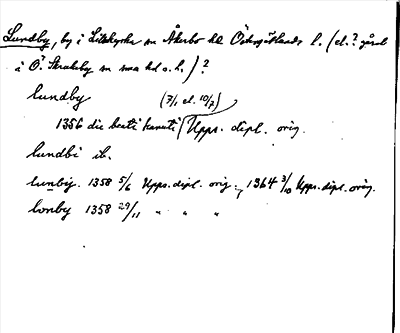 Lundby, by i Lillkyrka sn Åkerbo hd Östergötlands l. (el.? gård
i Ö. Skrukeby sn sma hd o. l.)?
lundby (7/1 el. 10/7)
1356 die beati kanuti Upps. dipl. orig.
lundbi ib.
lunby. 1358 5/6 Upps. dipl. orig., 1364 3/10 Upps. dipl. orig.
lonby 1358 29/11 " " "